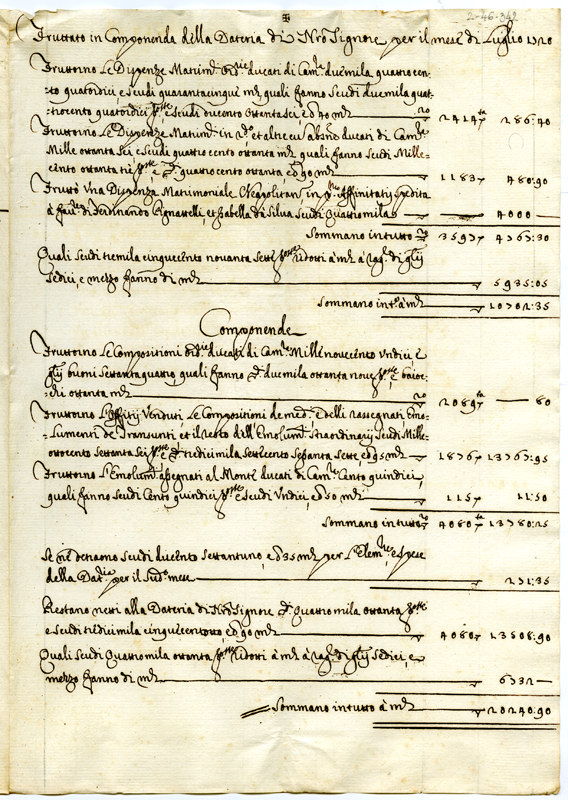 2-46-342
Fruttato in Componenda della Dateria di Nro Signore per il mese di Luglio 1720
Fruttorno Le Dispenze Matrim. ord.rie ducati di Cam.ra duemila quattrocen-
to quatordici e scudi quarantacinque m.ta quali fanno Scudi duemila quat-
trocento quatordici e scudi ducento Ottanta sei e 40 m.ta 2414 286:40
Fruttorno Le Dispenze Matrim. in et altre ducati di Cam.ra
Mille ottanta sei e scudi quattro cento ottanta m.ta quali fanno Scudi Mille-
cento ottanta tre e quattrocento ottanta e 90 m.ta 1183 480:90
Fruttò Una Dispenza Matrimoniale Neapolitan. in Affinitatis spedita
à fav.re di Ferdinando Pignattelli, et Isabella da Silva Scudi Quattromila 4000
Sommano in tutto 3597 4767:30
Quali Scudi tremila cinquecento novanta sette ridotti à m.ta à rag.e di
sedici, e mezzo fanno di m.ta 5935:05
Sommano int.o à m.ta 10702:35
Componende
Fruttorno Le Compositioni ord.rie ducati di Cam.ra Mille novecento Undici, e
buoni Settanta quattro, quali fanno duemila ottanta nove e baioc-
chi ottanta m.ta 2089 80
Fruttorno Venduti Le Compositioni de med. e delli rassegnati Emo-
lumenti de Transunti et il resto dell'Emolum. straordinarij Scudi Mille
ottocento Settanta Sei e tredicimila Settecento Sessanta Sette, e 95 m.ta 1876 13767:95
Fruttorno L'Emolum. assegnati al Monte ducati di Cam.ra Cento quindici,
quali fanno Scudi Cento quindici e scudi Undici, e 50 m.ta 115 11:50
Sommano in tutto 4080 13780:25
Se ne detrano Scudi ducento Settantuno, e 35 m.ta per L'Elem.ne e spese
della Dat.ria per il sud.o mese 271:35
Restano netti alla Dateria di Nro Signore Quattromila ottanta
e scudi tredicimila cinquecento otto e 90 m.ta 4080 13508:90
Quali Scudi Quattromila ottanta ridotti à m.ta à rag.e di sedici, e
mezzo fanno di m.ta 6732
Sommano in tutto à m.ta 20240:90